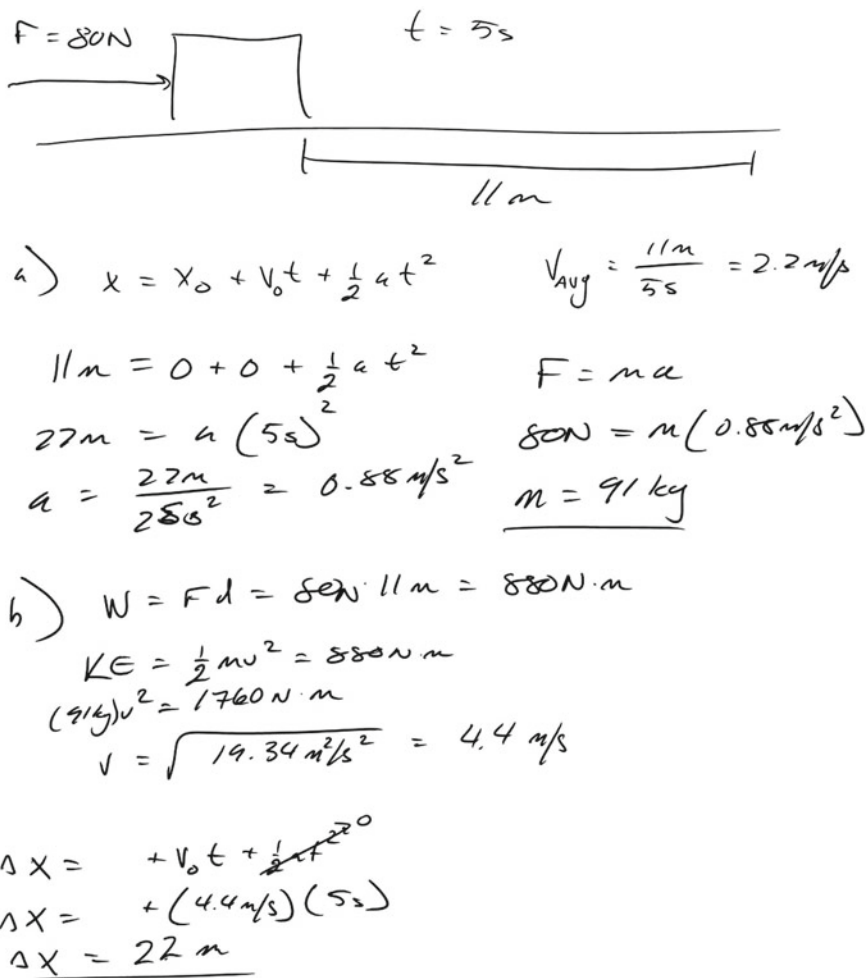 F = 80N
t = 5s
11 m
a) x = x₀ + v₀t + ½ a t²
V_Avg = 11m / 5s = 2.2 m/s
11m = 0 + 0 + ½ a t²
F = ma
22m = a (5s)²
80N = m (0.88 m/s²)
a = 22m / 25s² = 0.88 m/s²
m = 91 kg
b) W = Fd = 80N · 11m = 880 N·m
KE = ½ mv² = 880 N·m
(91kg)v² = 1760 N·m
v = √19.34 m²/s² = 4.4 m/s
Δx = + v₀t + ½at² 0
Δx = + (4.4 m/s)(5s)
Δx = 22 m